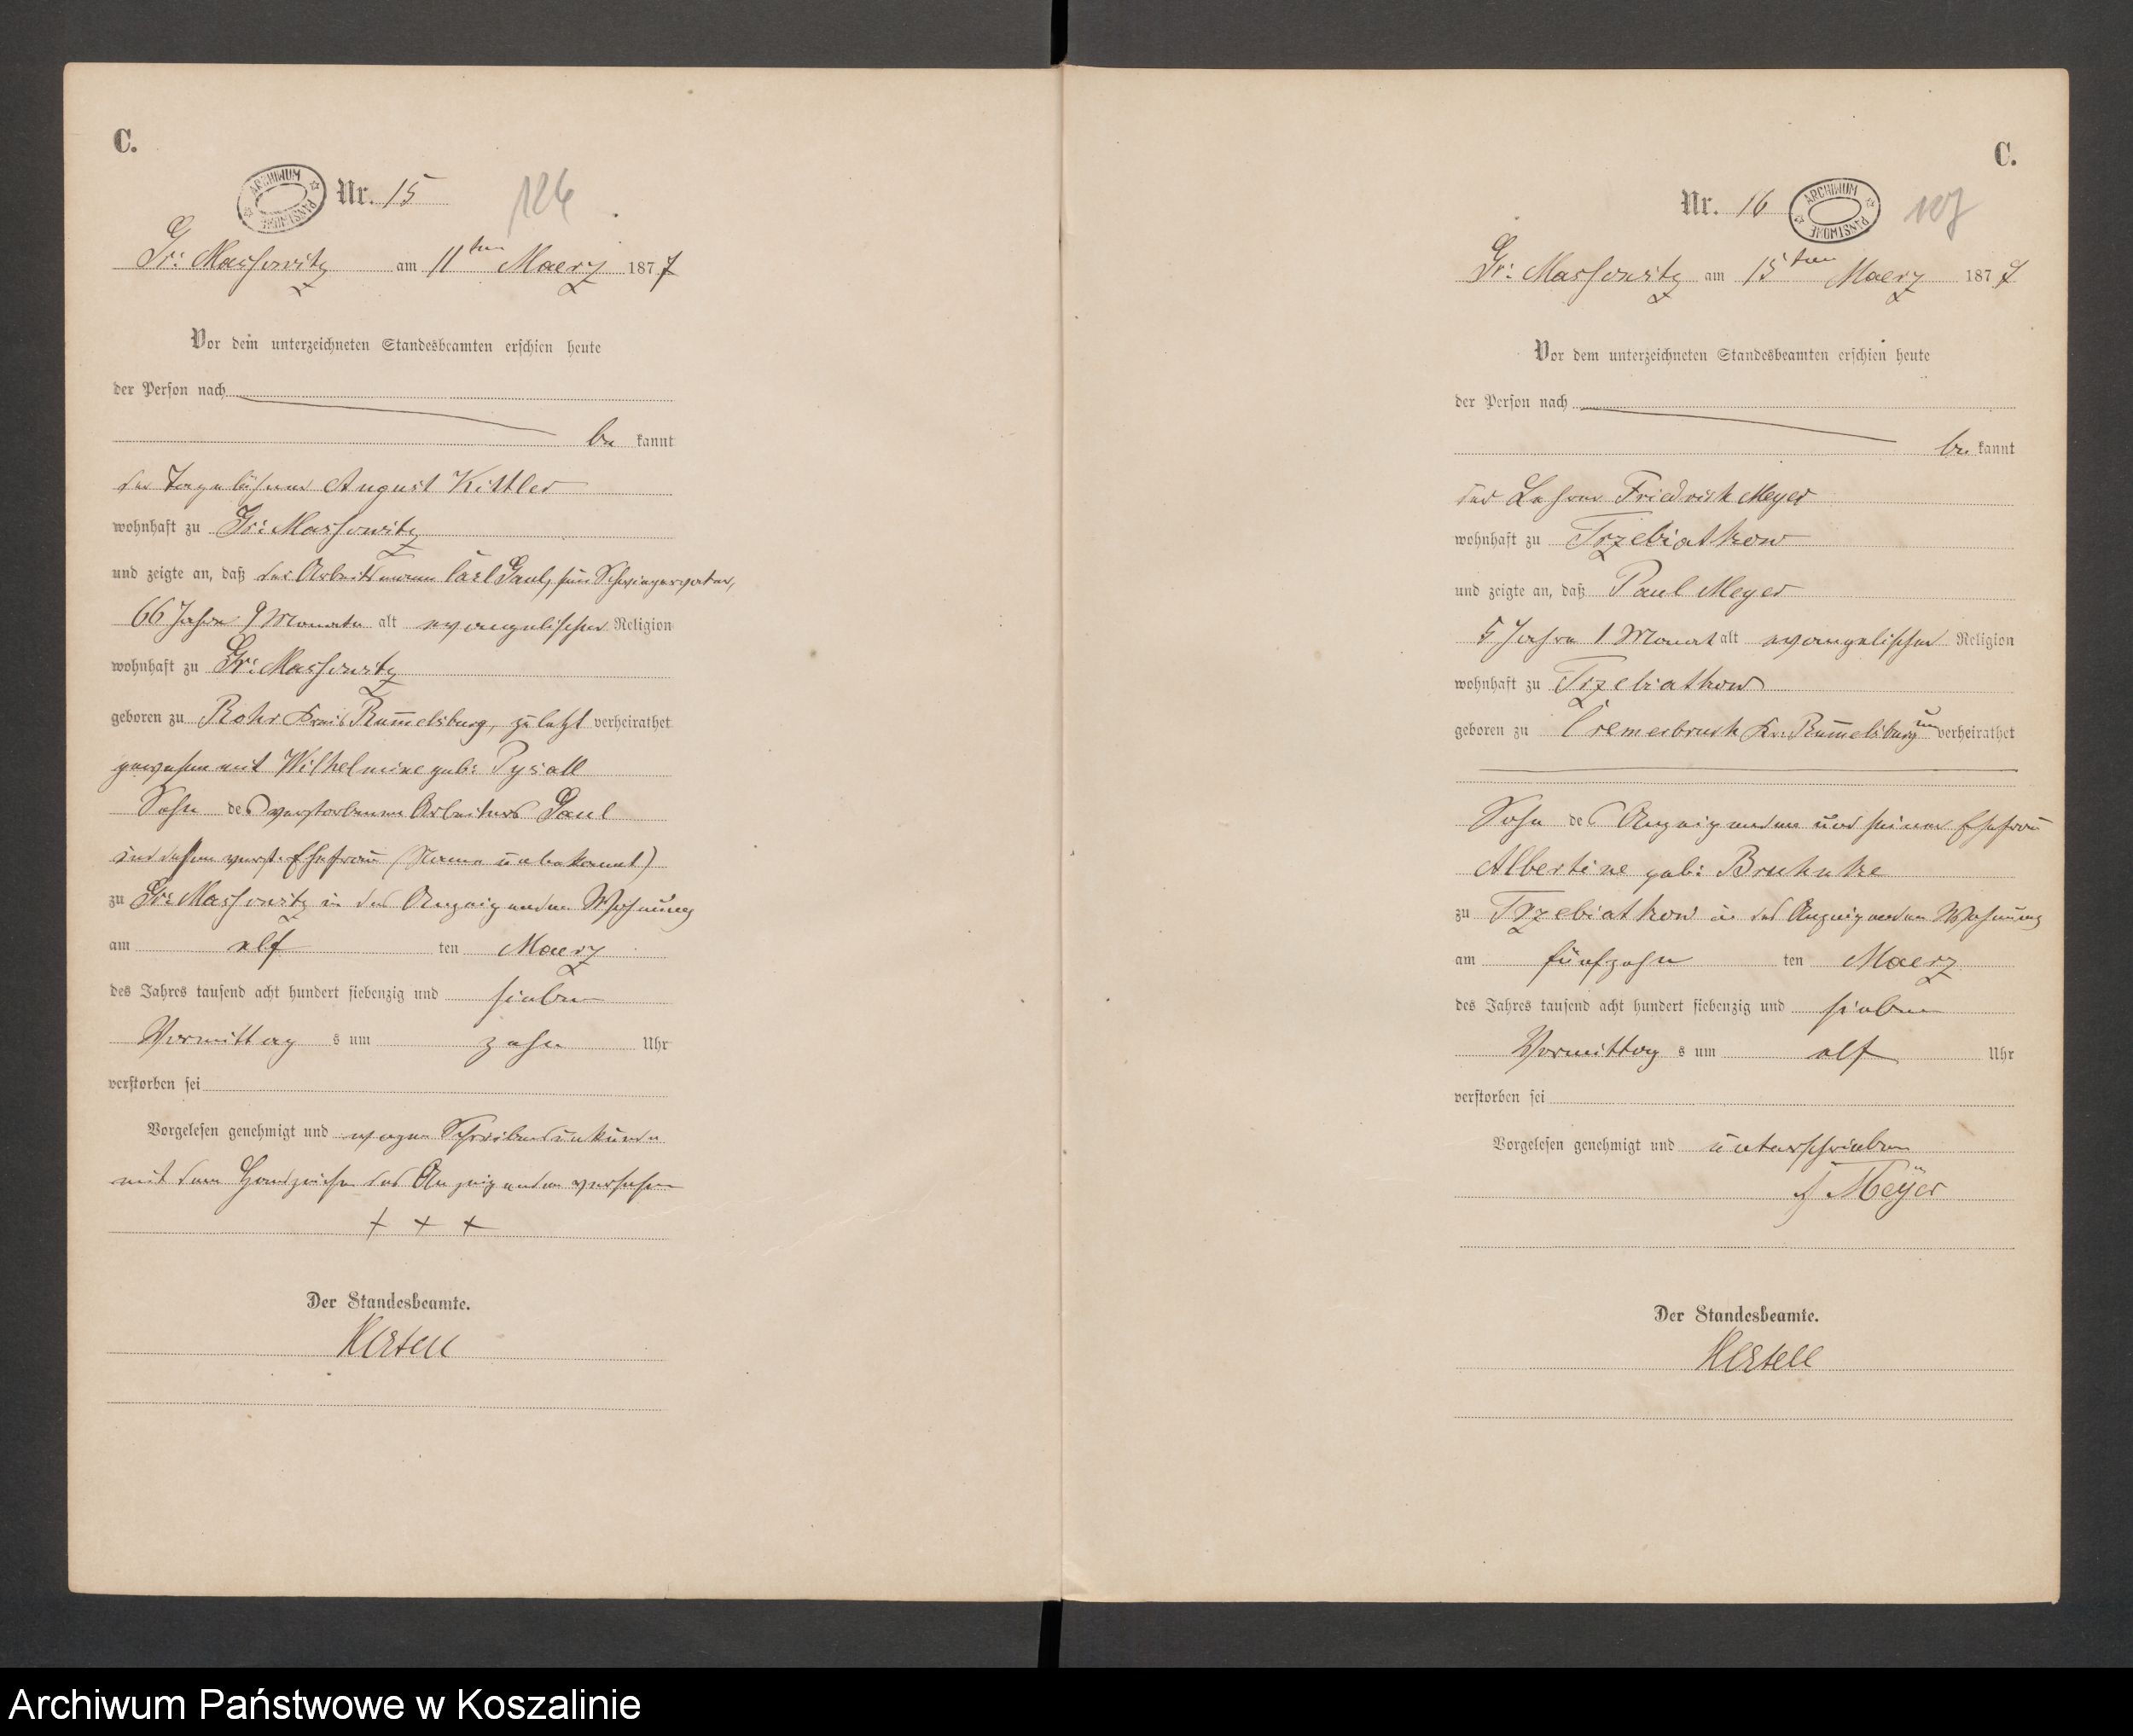 C.
ARCHIWUM PAŃSTWOWE
Nr. 15
Gr: Massowitz am 11ten Maerz 1877
Vor dem unterzeichneten Standesbeamten erschien heute
der Person nach
be kannt
der Tagelöhner August Kittler
wohnhaft zu Gr: Massowitz
und zeigte an, daß der Arbeitsmann Carl Paul, sein Schwiegervater,
66 Jahre 9 Monate alt evangelischer Religion
wohnhaft zu Gr: Massowitz
geboren zu Rohr Kreis Rummelsburg, zuletzt verheirathet
gewesen mit Wilhelmine geb:
Sohn des verstorbenen Arbeiters Paul
und dessen verst. Ehefrau (Name unbekannt)
zu Gr: Massowitz in des Anzeigenden Wohnung
am elf ten Maerz
des Jahres tausend acht hundert siebenzig und sieben
Vormittag s um zehn Uhr
verstorben sei
Vorgelesen genehmigt und wegen Schreibensunkunde
mit dem Handzeichen des Anzeigenden versehen
+ + +
Der Standesbeamte.
Hertell
C.
Nr. 16
ARCHIWUM PAŃSTWOWE
107
Gr: Massowitz am 15ten Maerz 1877
Vor dem unterzeichneten Standesbeamten erschien heute
der Person nach
be kannt
der Lehrer Friedrich Meyer
wohnhaft zu Trzebiatkow
und zeigte an, daß Paul Meyer
5 Jahre 1 Monat alt evangelischer Religion
wohnhaft zu Trzebiatkow
geboren zu Cremerbruch Kr: Rummelsburg un verheirathet
Sohn des Anzeigenden und seiner Ehefrau
Albertine geb: Bruhnke
zu Trzebiatkow in des Anzeigenden Wohnung
am fünfzehn ten Maerz
des Jahres tausend acht hundert siebenzig und sieben
Vormittag s um elf Uhr
verstorben sei
Vorgelesen genehmigt und unterschrieben
F Meÿer
Der Standesbeamte.
Hertell
Archiwum Państwowe w Koszalinie